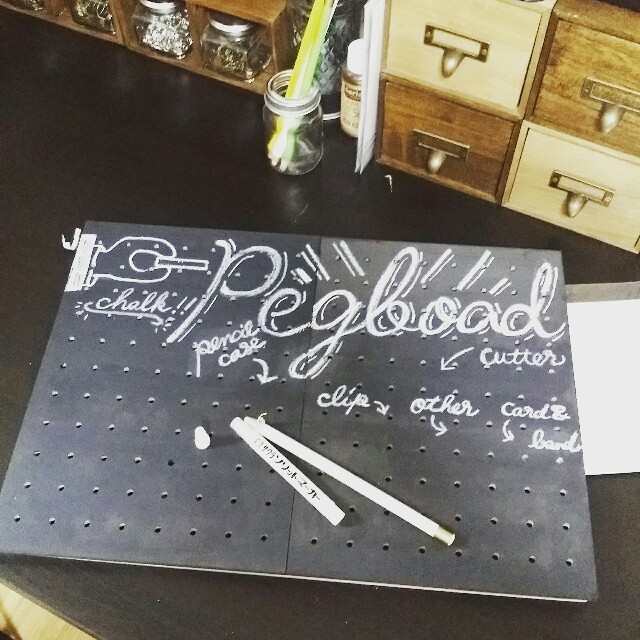 Pegboad
chalk!!
pencil
case
cutter
clip
other
card &